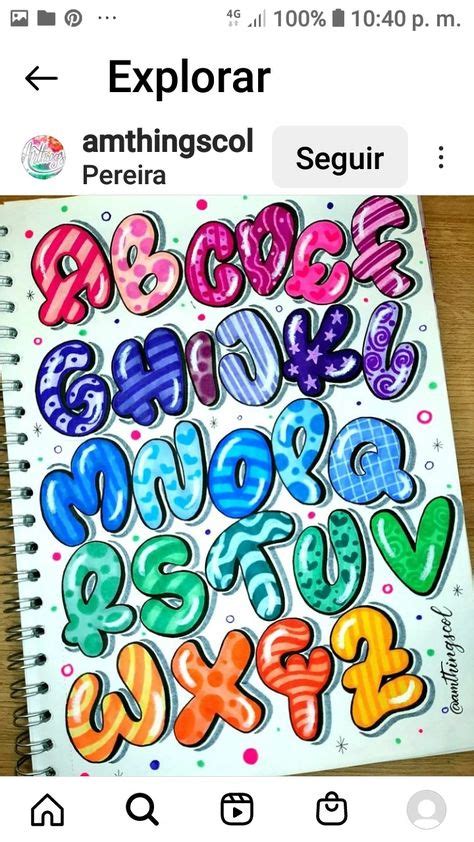 4G 100% 10:40 p. m.
Explorar
amthingscol
Pereira
Seguir
ABCDEF
GHIJKL
MNOPQ
RSTUV
WXYZ
@amthingscol